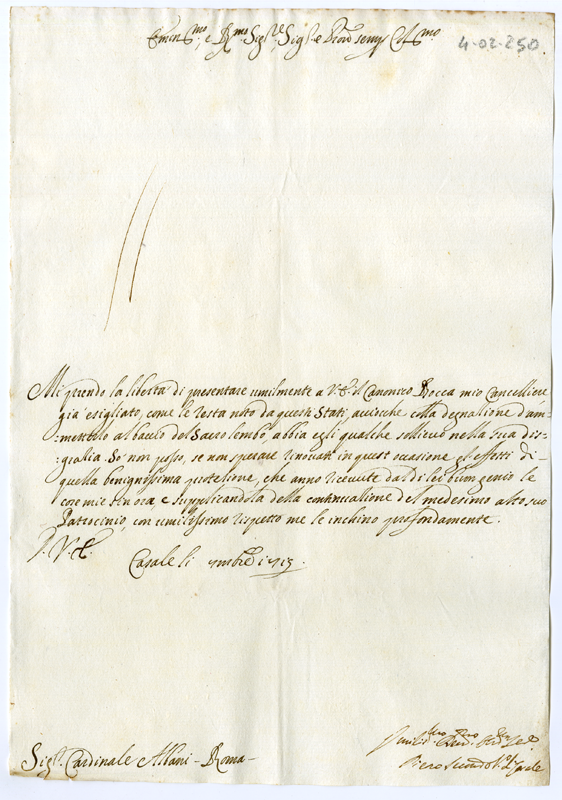 Emin.mo, e R.mo Sig.re, Sig.r e Pron semp. Col.mo
4-02-250
Mi prendo la libertà di presentare umilmente a V. E. il Canonico Rocca mio Cancelliere
già esigliato, come le resta noto da questi Stati, acciochè colla degnazione d'am-
:metterlo al bacio del Sacro lembo, abbia egli qualche sollievo nella sua dis-
:grazia. Io non posso, se non sperare rinovati in quest'occasione gl'effetti di
quella benignissima protezione, che anno ricevute dal di lei buon genio le
cose mie sin ora, e supplicandola della continuazione del medesimo alto suo
Patrocinio, con umilissimo rispetto me le inchino profondamente.
D. V. E.
Casale li 9mbre 1713.
Sig.r Cardinale Albani - Roma -
Piero Secondo V.o di Casale